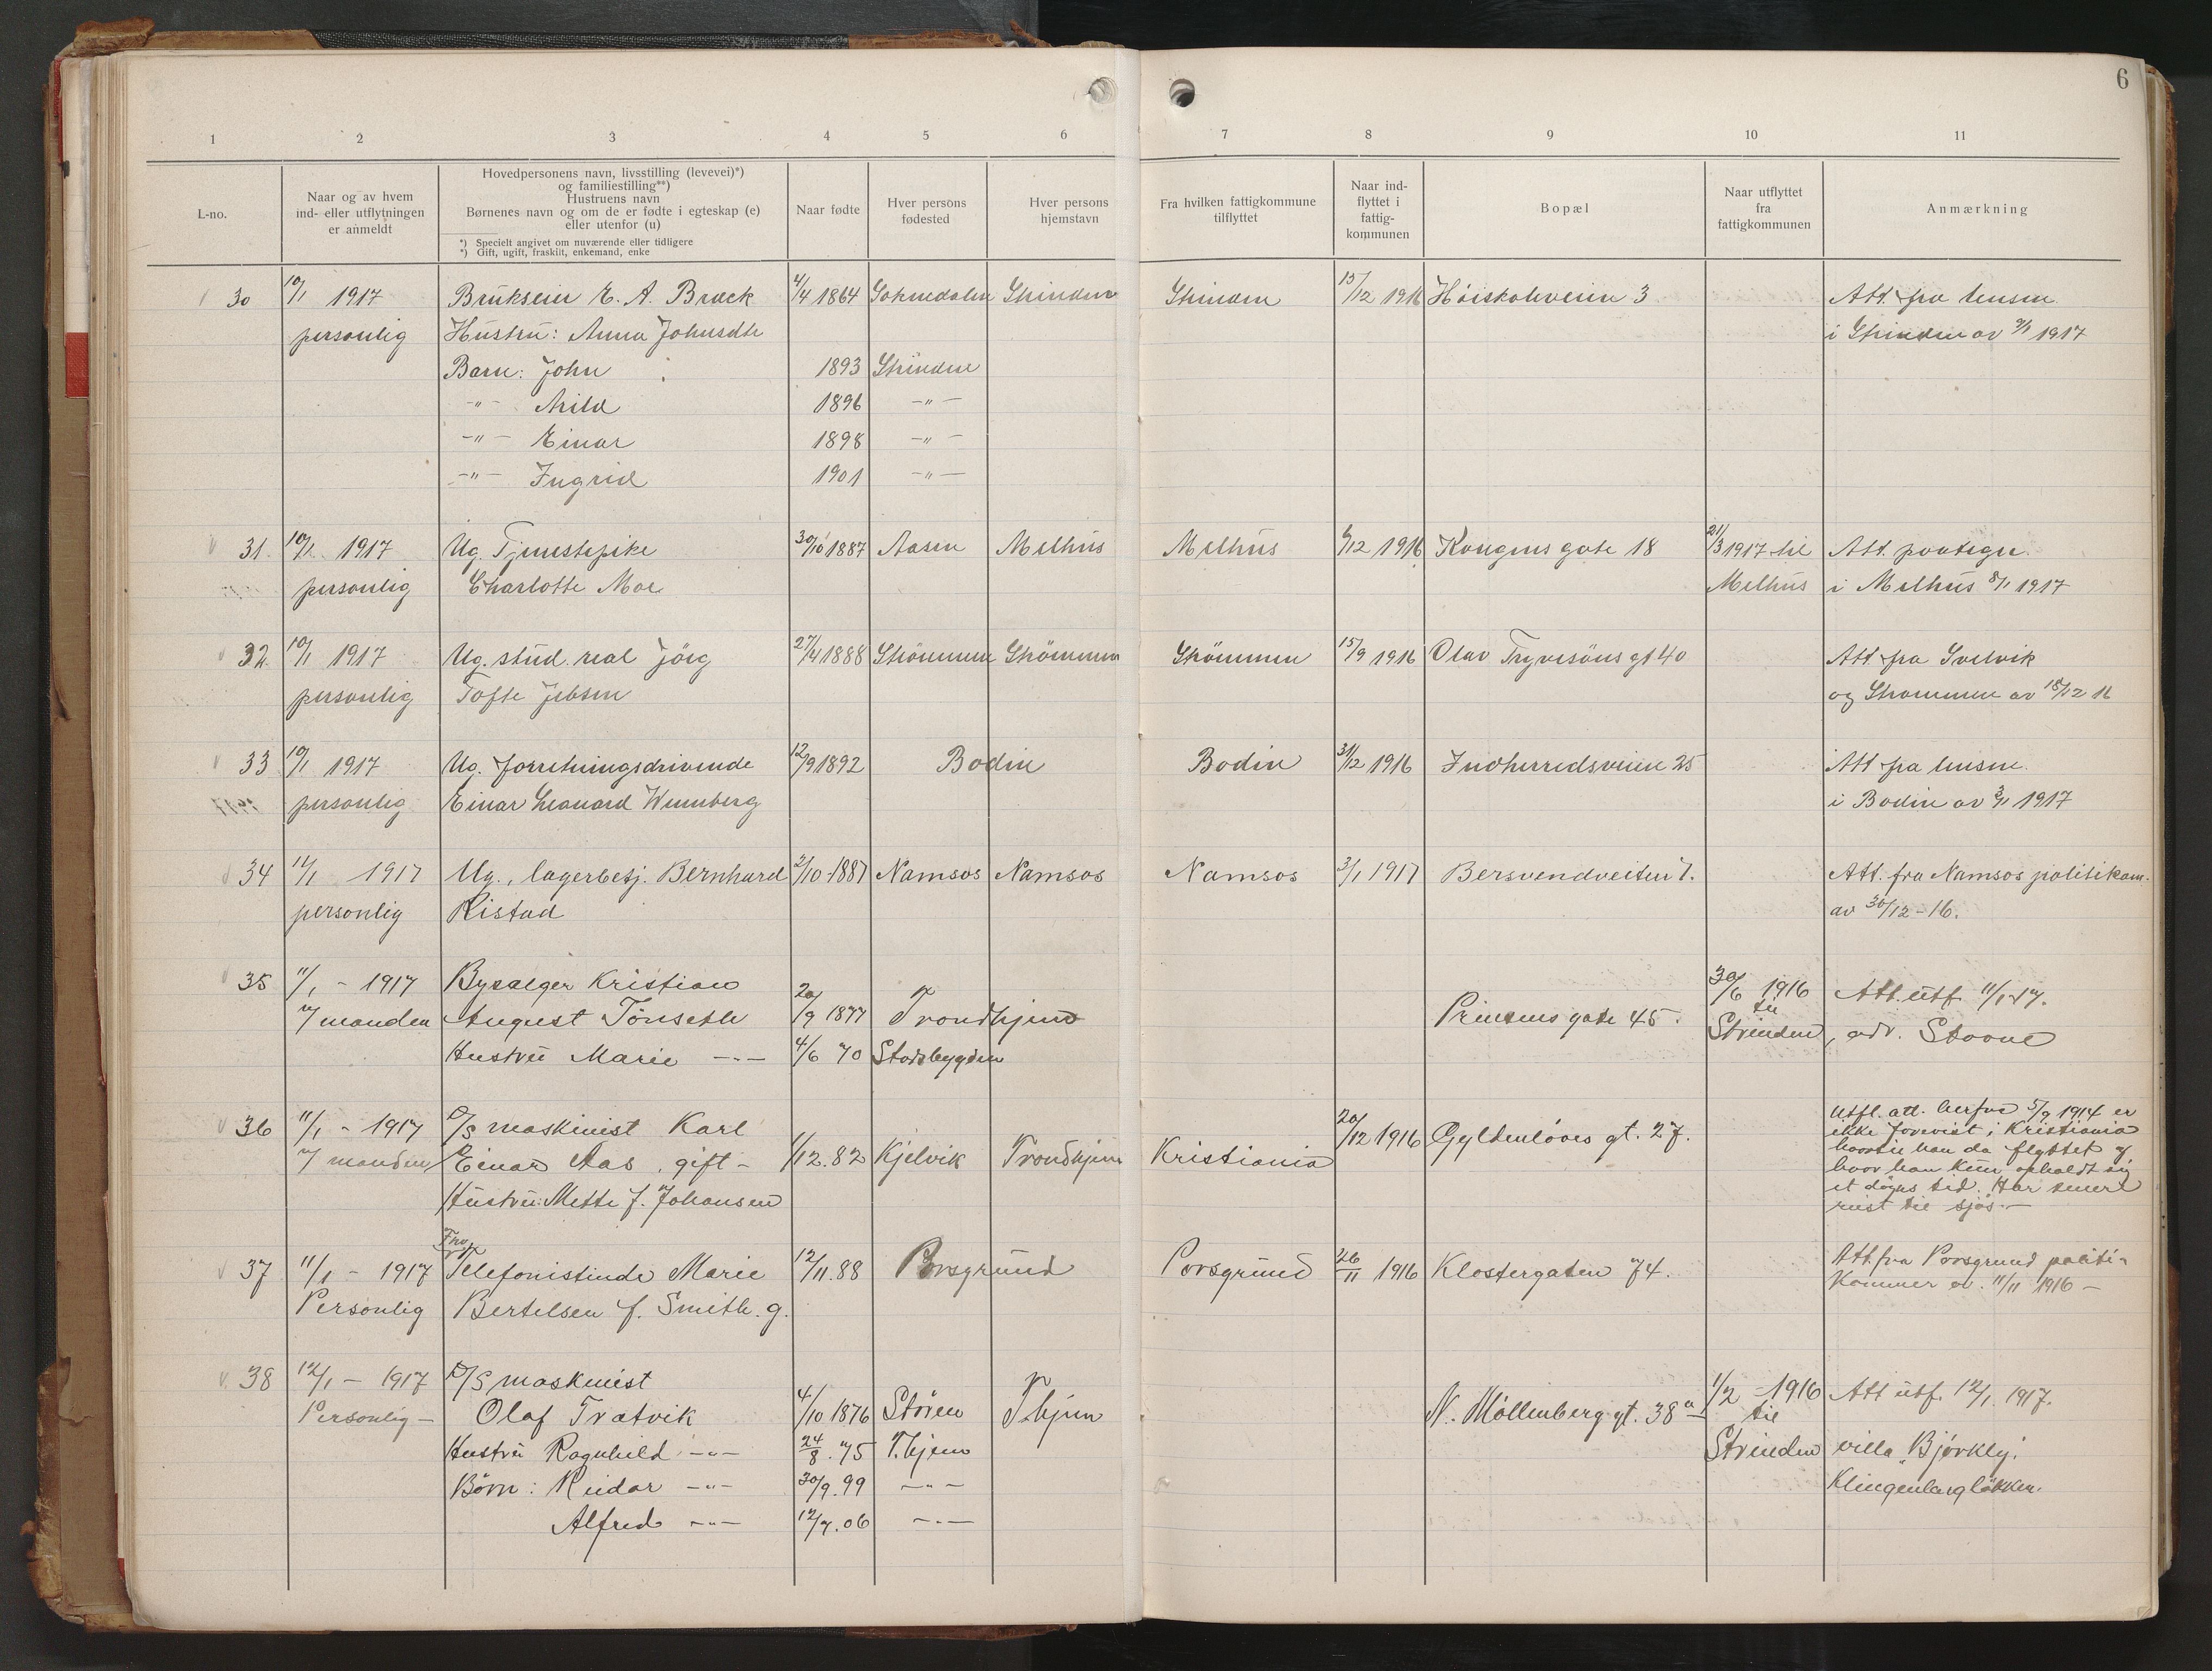 6
1 2 3 4 5 6 7 8 9 10 11
L-no.
Naar og av hvem
ind- eller utflytningen
er anmeldt
Hovedpersonens navn, livsstilling (levevei)*)
og familiestilling**)
Hustruens navn
Børnenes navn og om de er fødte i egteskap (e)
eller utenfor (u)
*) Specielt angivet om nuværende eller tidligere
*) Gift, ugift, fraskilt, enkemand, enke
Naar fødte
Hver persons
fødested
Hver persons
hjemstavn
Fra hvilken fattigkommune
tilflyttet
Naar ind-
flyttet i
fattig-
kommunen
Bopæl
Naar utflyttet
fra
fattigkommunen
Anmærkning
30 10/1 1917 Brukseier E. A. Bræck 4/4 1864 Soknedalen Strinden Strinden 15/12 1916 Høiskoleveien 3 Att. fra lensm.
personlig Hustru: Anna Johnsdtr i Strinden av 9/1 1917
Barn: John 1893 Strinden
-"- Arild 1896 -"-
-"- Einar 1898 -"-
-"- Ingrid 1901 -"-
31 10/1 1917 Ug. Tjenestepike 30/10 1887 Aasen Melhus Melhus 1/12 1916 Kongens gate 18 21/3 1917 til Att. paategn.
personlig Charlotte Moe Melhus i Melhus 8/1 1917
32 10/1 1917 Ug. stud. real Jörg 27/4 1888 Strömmen Strömmen Strömmen 15/9 1916 Olav Trygvesöns gt 40 Att. fra Svelvik
personlig Tofte Jebsen og Strommen av 18/12 16
33 10/1 1917 Ug. forretningsdrivende 12/9 1892 Bodin Bodin 31/12 1916 Indherredsveien 25 Att fra lensm.
personlig Einar Leonard Wennberg i Bodin av 3/1 1917
34 11/1 1917 Ug., lagerbesj. Bernhard 2/10 1887 Namsos Namsos Namsos 3/1 1917 Bersvendveiten 7. Att. fra Namsos politikam.
personlig Ristad av 30/12-16.
35 11/1 - 1917 Bysælger Kristian 30/6 1916
v/ manden August Tönseth 20/9 1877 Trondhjem Prinsens gate 45. til Att. utf. 11/1-17.
Hustru Marie -"- 4/6 70 Stadsbygden Strinden, adr. Stavne
36 11/1 - 1917 D/S maskinist Karl 20/12 1916 Gyldenløves gt. 27. Utfl. att. herfra 5/9 1914 er
v/ manden Einar Aas, gift - 1/12.82 Kjelvik Trondhjem Kristiania ikke forevist i Kristiania
Hustru: Mette f. Johansen hvortil han da flyttet og
hvor han kun opholdt sig
et døgns tid. Har senere
reist til sjös. -
37 11/1 - 1917 Fru
Telefonistinde Marie 12/11.88 Porsgrund Porsgrund 26/11 1916 Klostergaten 74. Att. fra Porsgrund politi-
Personlig Bertelsen f. Smith. g. kammer av. 11/11 1916 -
38 12/1 - 1917 D/S maskinist 1/2 - 1916 Att utf. 12/1. 1917.
Personlig - Olaf Tratvik 4/10 1876 Støren T.hjem N. Møllenberg gt. 38a til
Hustru Ragnhild -"- 24/8.75 T.hjem Strinden villa "Bjørkly"
Børn: Reidar -"- 30/9.99 -"- Klingenberg løkken.
Alfred -"- 12/7.06 -"-